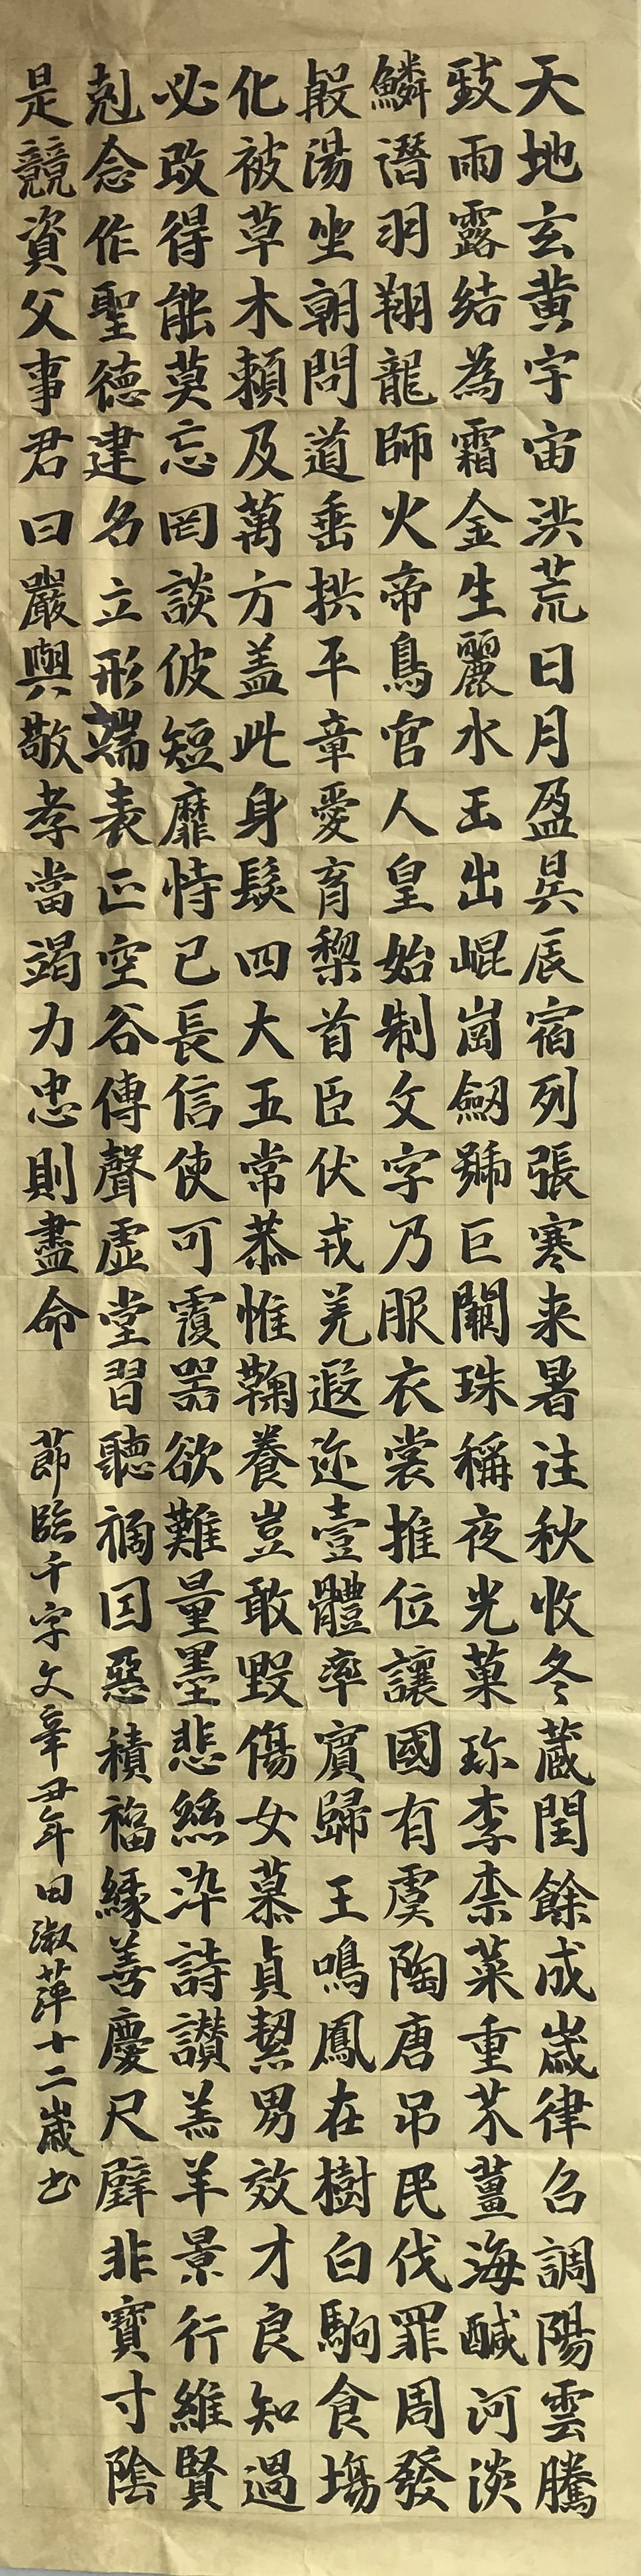 天地玄黄宇宙洪荒日月盈昃辰宿列張寒来暑往秋收冬蔵閏餘成歲律召調陽雲騰
致雨露結為霜金生麗水玉出崐崗劒號巨闕珠稱夜光菓珎李柰菜重芥薑海鹹河淡
鱗潛羽翔龍師火帝鳥官人皇始制文字乃服衣裳推位讓國有虞陶唐吊民伐罪周發
殷湯坐朝問道垂拱平章愛育黎首臣伏戎羌遐迩壹體率賓歸王鳴鳳在樹白駒食場
化被草木賴及萬方盖此身髮四大五常恭惟鞠養豈敢毀傷女慕貞絜男效才良知過
必改得能莫忘罔談彼短靡恃己長信使可覆器欲難量墨悲絲染詩讃羔羊景行維賢
剋念作聖德建名立形端表正空谷傳聲虛堂習聽禍因惡積福緣善慶尺璧非寶寸陰
是競資父事君曰嚴與敬孝當竭力忠則盡命 節臨千字文辛丑年田淑萍十二歲书